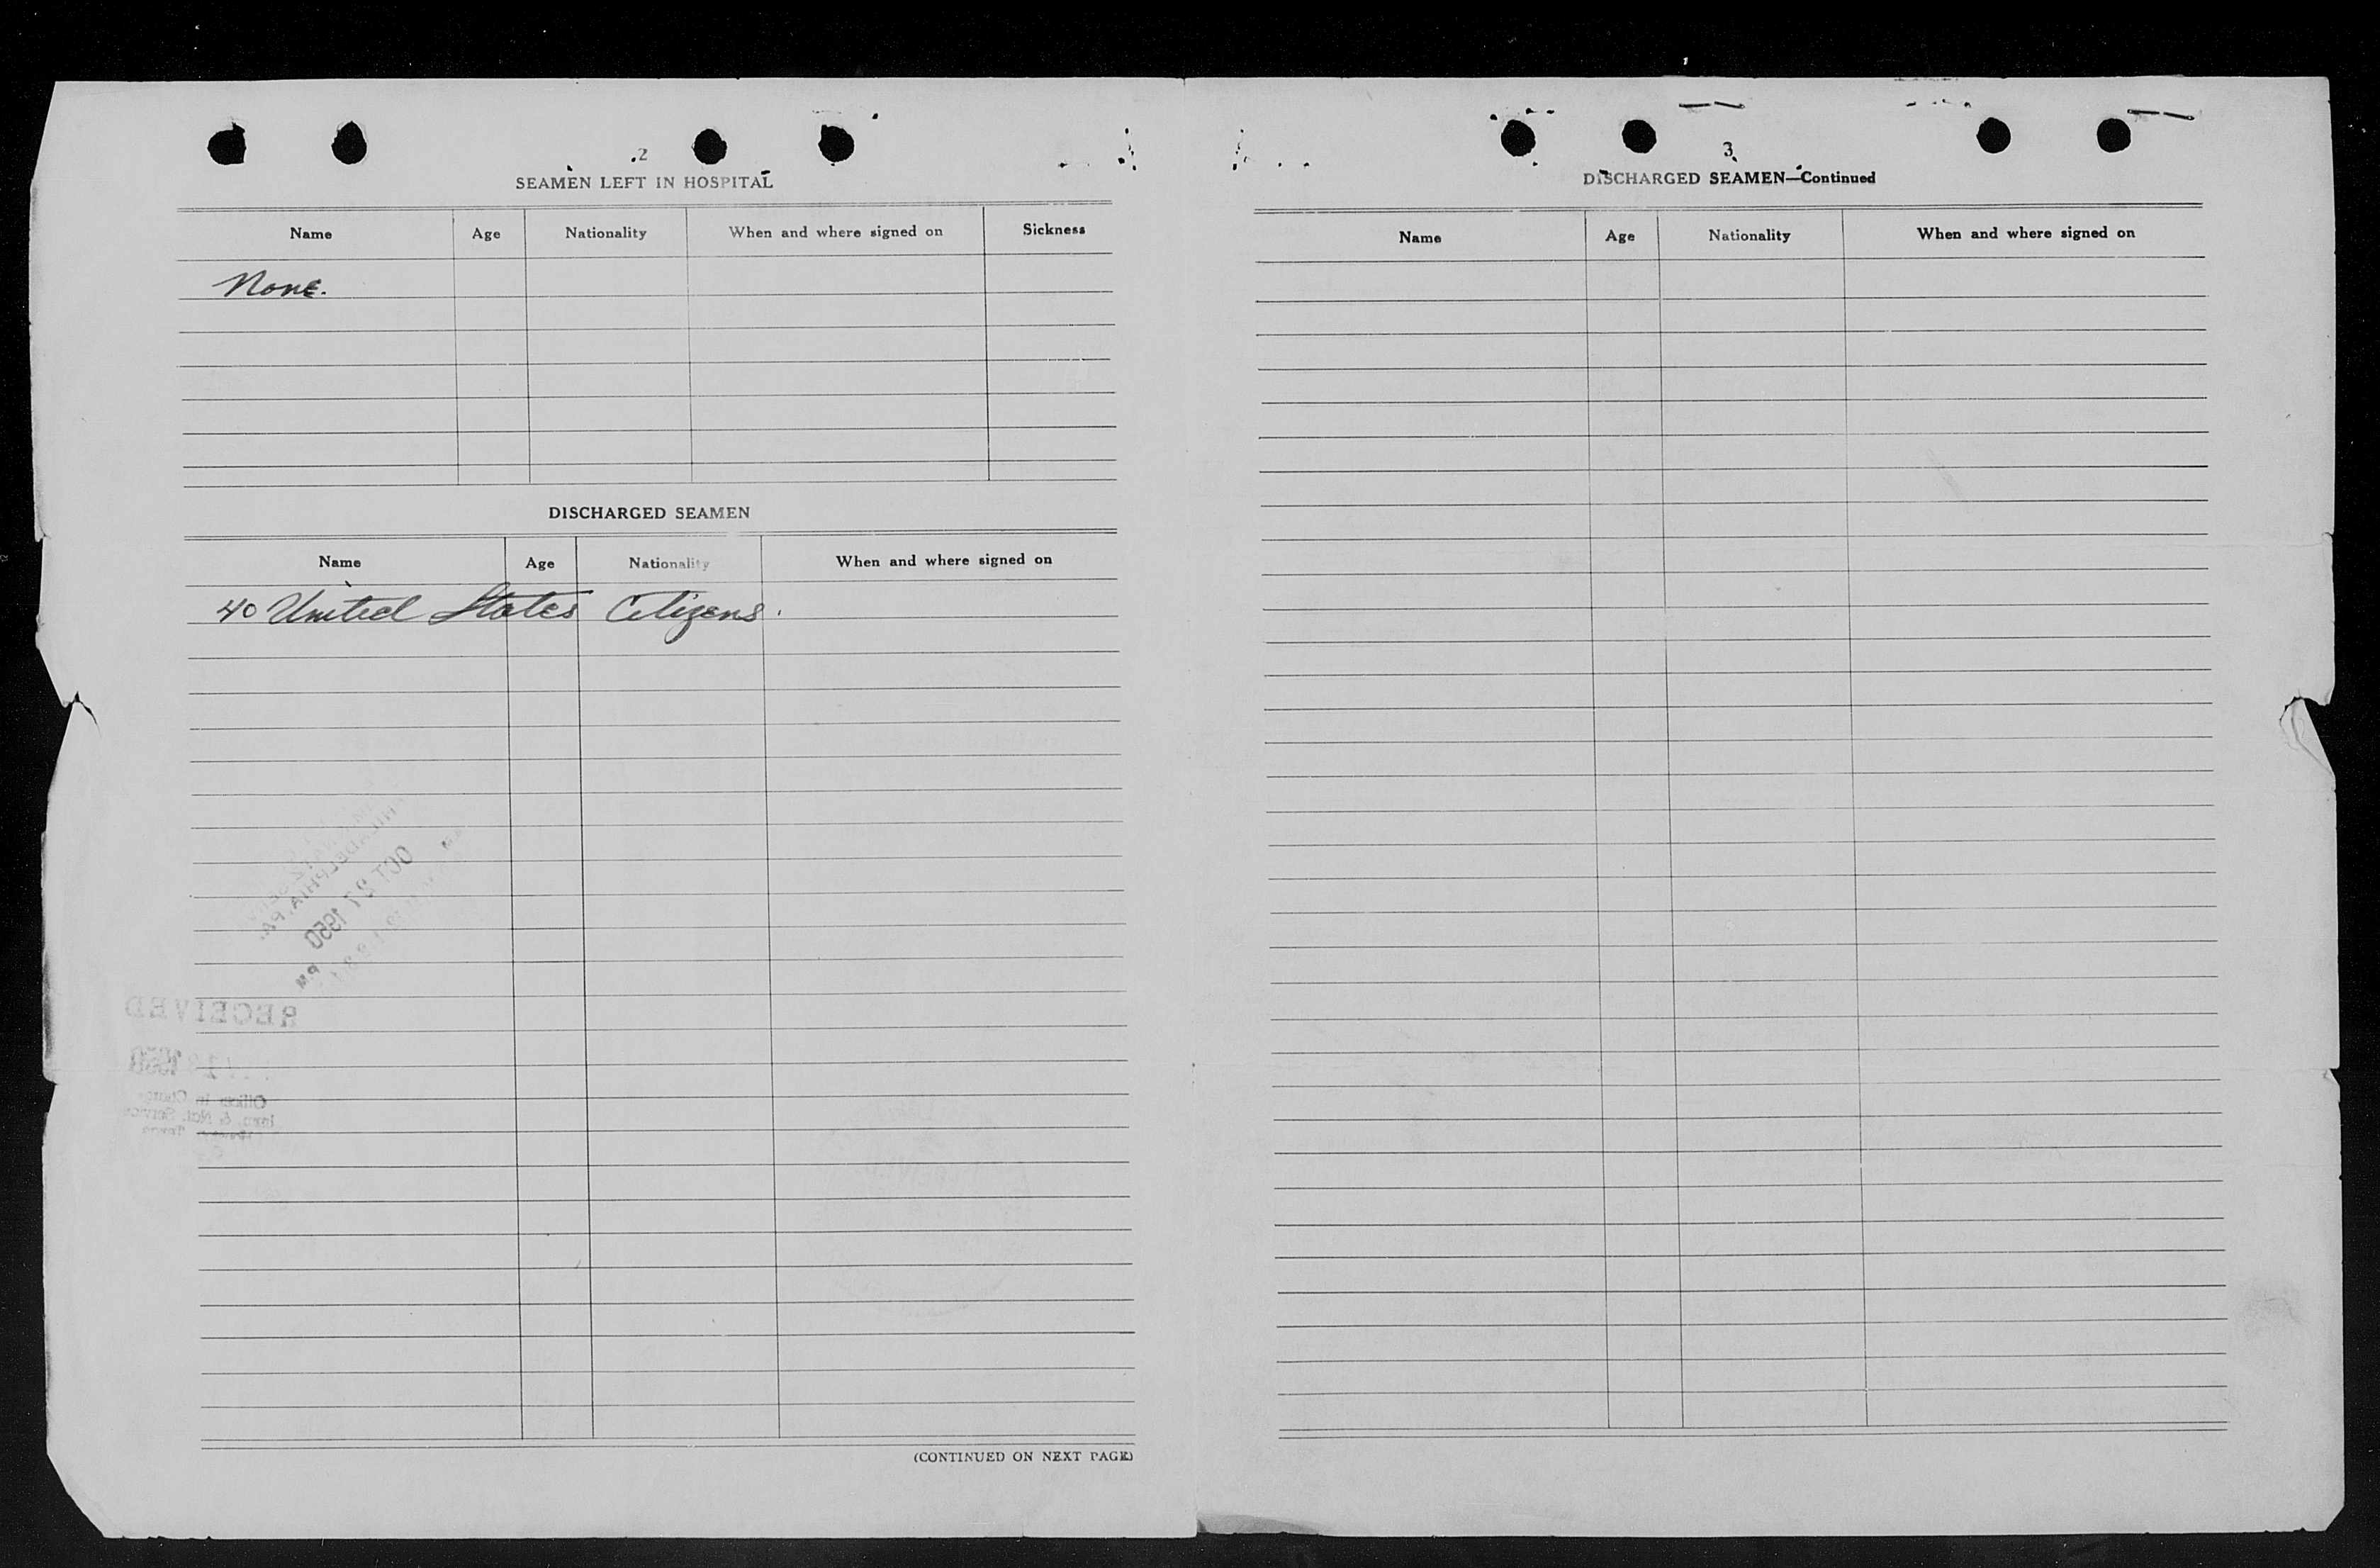 2
SEAMEN LEFT IN HOSPITAL
Name Age Nationality When and where signed on Sickness
None.
DISCHARGED SEAMEN
Name Age Nationality When and where signed on
40 United States Citizens.
PHILADELPHIA, PA.
OCT 27 1950
PM
RECEIVED
1950
Office in Charge
Imm. & Nat. Service
Texas
(CONTINUED ON NEXT PAGE)
3
DISCHARGED SEAMEN—Continued
Name Age Nationality When and where signed on